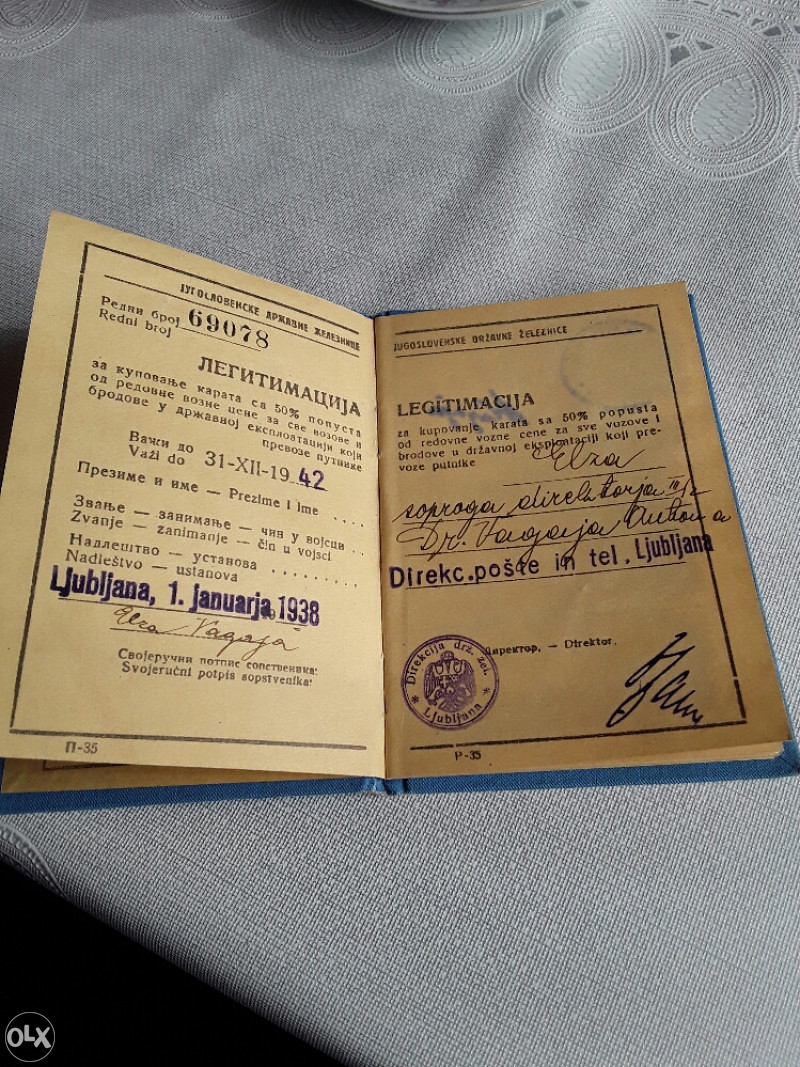 ЈУГОСЛОВЕНСКЕ ДРЖАВНЕ ЖЕЛЕЗНИЦЕ
Редни број
Redni broj 69078
ЛЕГИТИМАЦИЈА
за куповање карата са 50% попуста
од редовне возне цене за све возове и
бродове у државној експлоатацији који
превозе путнике
Важи до
Važi do 31-XII-1942
Презиме и име — Prezime i ime ....
Звање — занимање — чин у војсци ..
Zvanje — zanimanje — čin u vojsci
Надлештво — установа .........
Nadleštvo — ustanova
Ljubljana, 1. januarja 1938
Elza Vagaja
Својеручни потпис сопственика:
Svojeručni potpis sopstvenika:
П-35
JUGOSLOVENSKE DRŽAVNE ŽELEZNICE
LEGITIMACIJA
za kupovanje karata sa 50% popusta
od redovne vozne cene za sve vozove i
brodove u državnoj eksploataciji koji pre-
voze putnike
Elza
soproga direktorja III/2
Dr. Vagaja Antona
Direkc. pošte in tel. Ljubljana
Директор, — Direktor.
Direkcija drž. žel.
* Ljubljana *
P-35
OLX